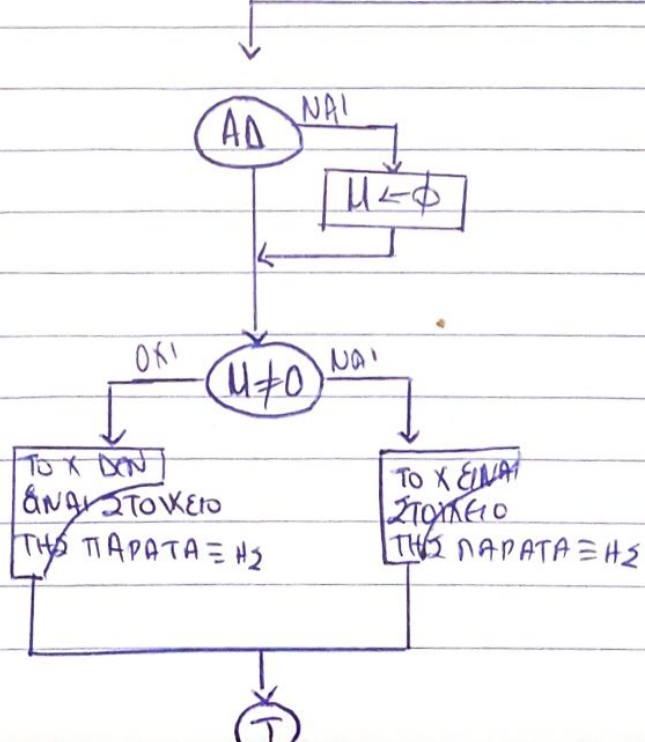 ΝΑΙ
ΑΔ
Μ ← φ
ΟΧΙ
ΝΑΙ
Μ≠0
ΤΟ Χ ΔΕΝ
ΕΙΝΑΙ ΣΤΟΙΧΕΙΟ
ΤΗΣ ΠΑΡΑΤΑΞΗΣ
ΤΟ Χ ΕΙΝΑΙ
ΣΤΟΙΧΕΙΟ
ΤΗΣ ΠΑΡΑΤΑΞΗΣ
Τ